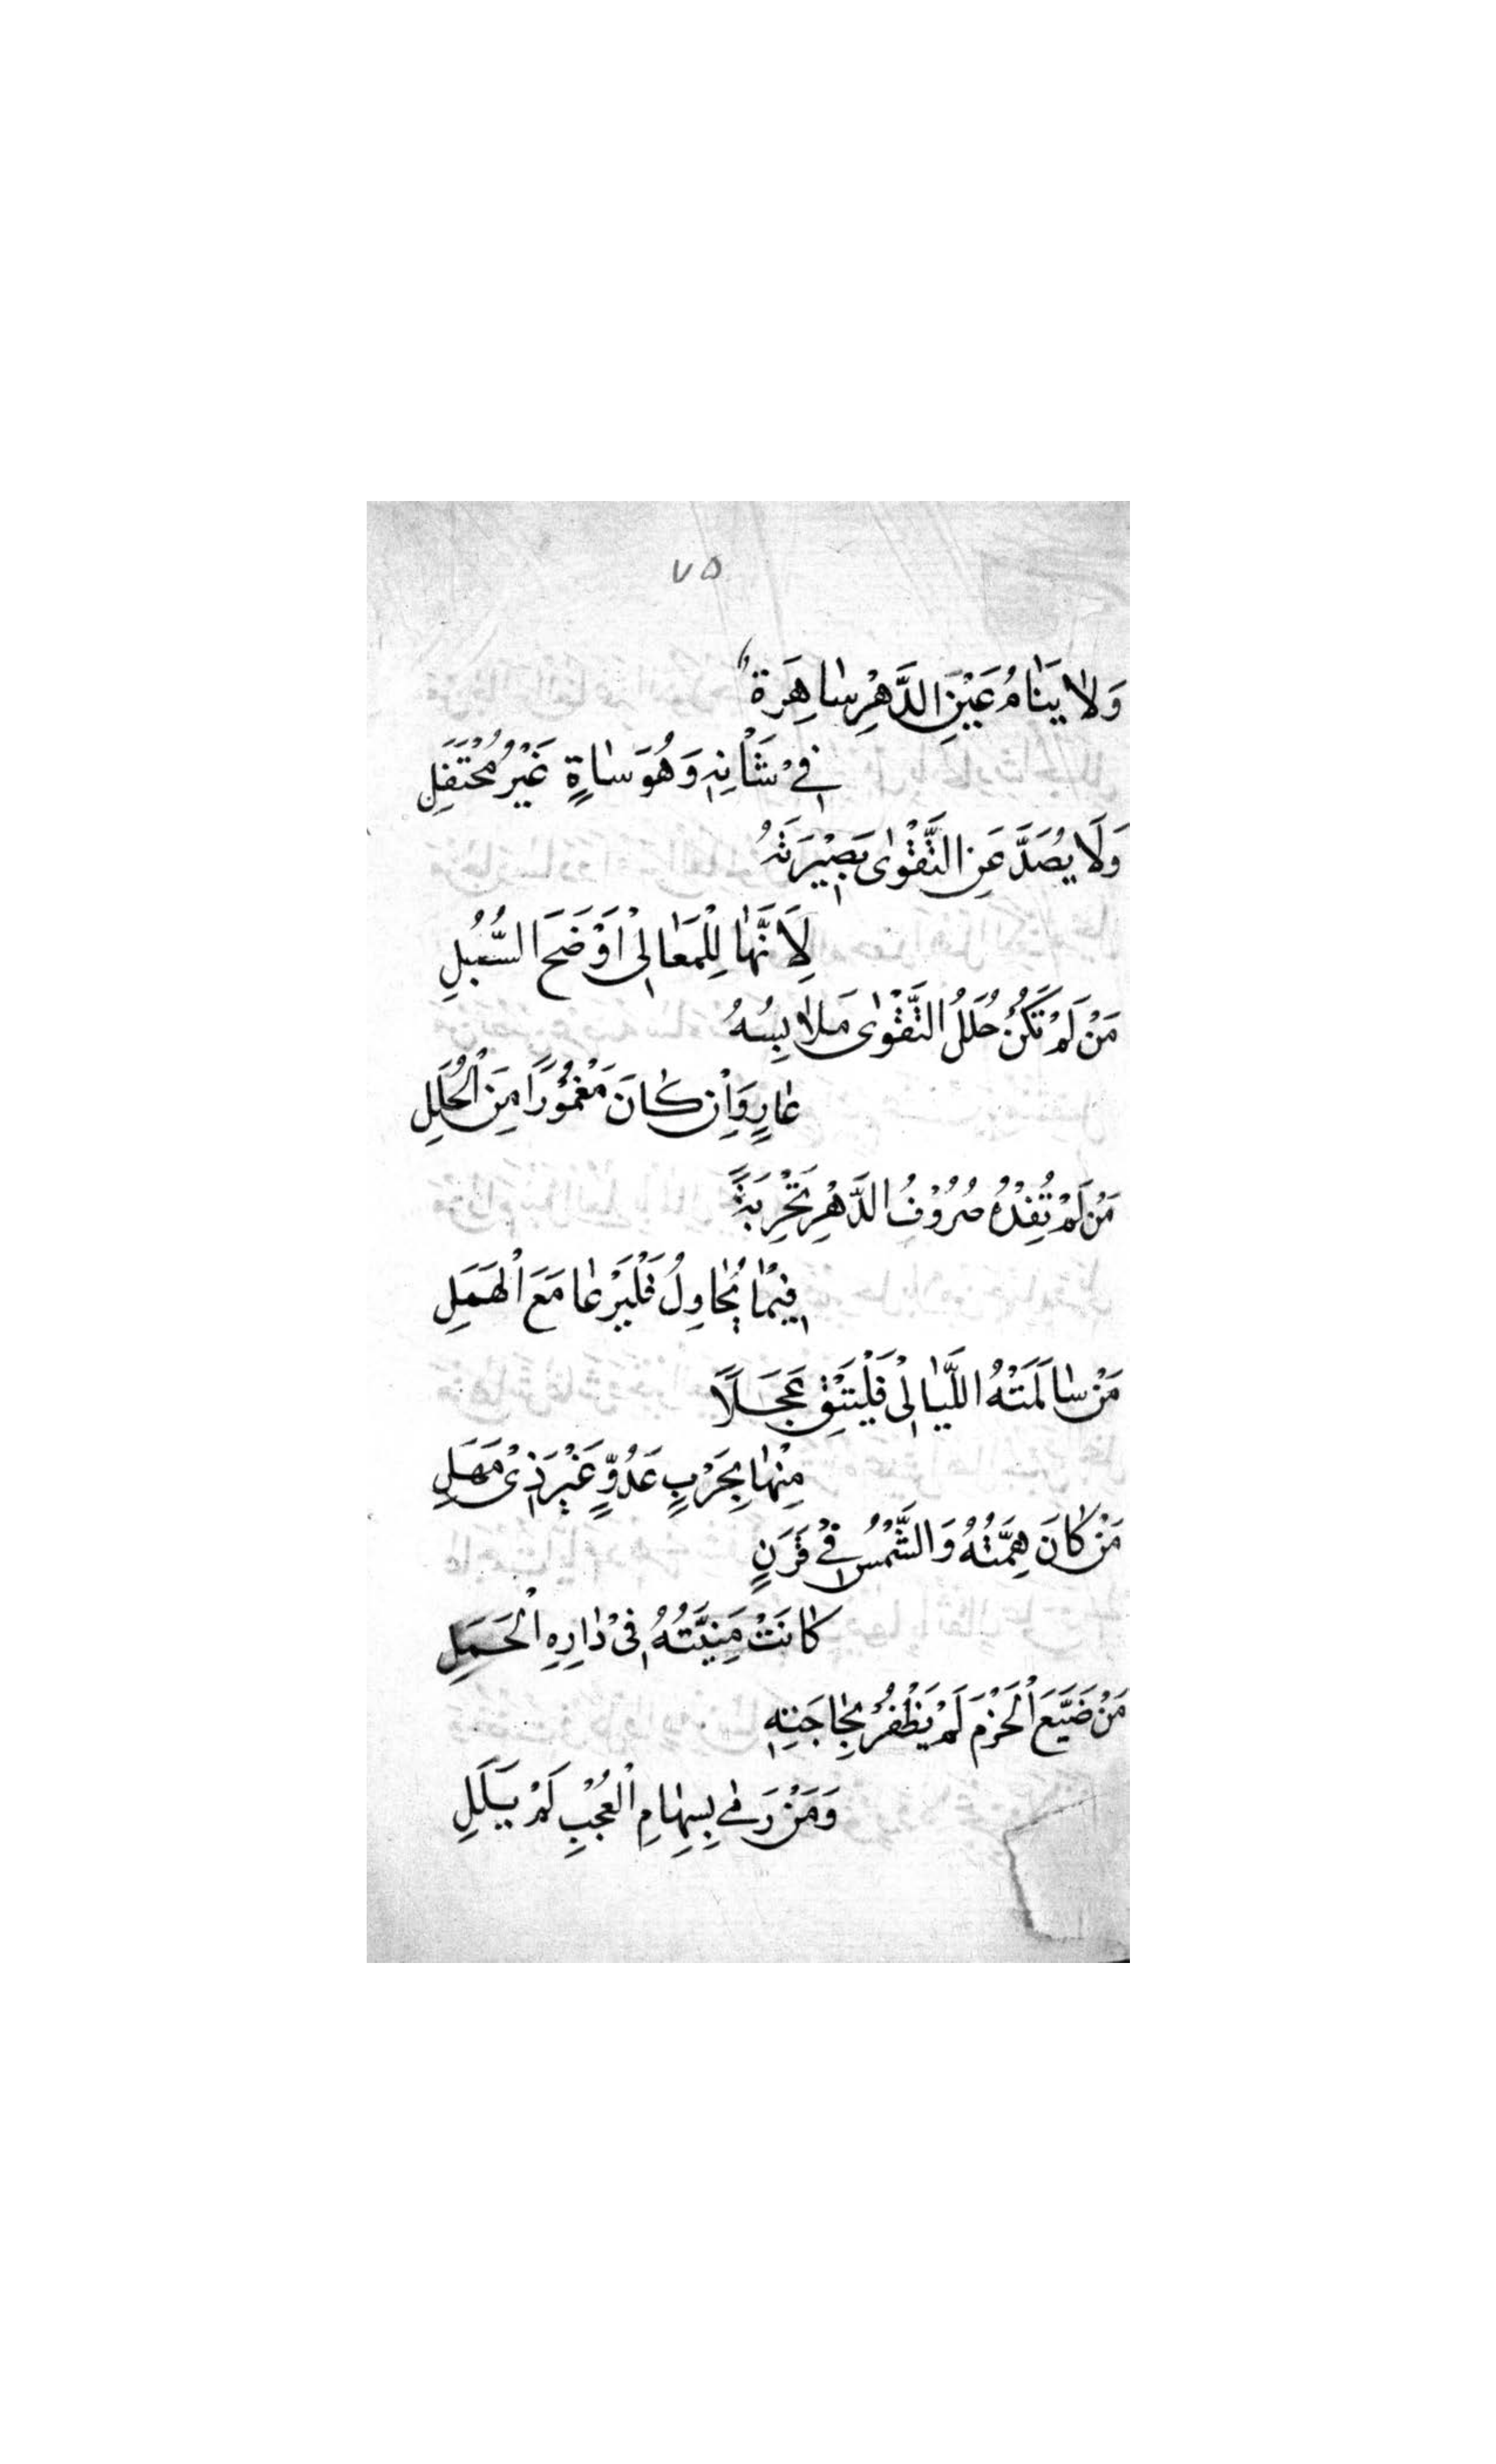 ٧٥
وَلَا يَنَامُ عَيْنِ الدَّهْرِ سَاهِرَة
فِيْ شَأْنِهِ وَهُوَ سَاهٍ غَيْرُ مُحْتَفِلِ
وَلَا يُصَدَّ عَنِ التَّقْوٰى بَصِيْرَتُهُ
لِاَنَّهَا لِلْمَعَالِيْ اَوْضَحَ السُّبُلِ
مَنْ لَمْ تَكُنْ حُلَلُ التَّقْوٰى مَلَابِسُهُ
عَارٍ وَاِنْ كَانَ مَغْمُوْرًا مِنَ الْحُلَلِ
مَنْ لَمْ تُفِدْهُ صُرُوْفُ الدَّهْرِ تَجْرِبَةً
فِيْمَا يُحَاوِلُ فَلْيَرْعَا مَعَ الْهَمَلِ
مَنْ سَالَمَتْهُ اللَّيَالِيْ فَلْيَثِقْ عَجَلًا
مِنْهَا بِحَرْبٍ عَدُوٍّ غَيْرِ ذِيْ مَهَلِ
مَنْ كَانَ هِمَّتُهُ وَالشَّمْسُ فِيْ قَرَنٍ
كَانَتْ مَنِيَّتُهُ فِيْ دَارِهِ الْحَمَلِ
مَنْ ضَيَّعَ الْحَزْمَ لَمْ يَظْفُرْ بِحَاجَتِهِ
وَمَنْ رَمٰى بِسِهَامِ الْعُجْبِ لَمْ يَبَلَلِ